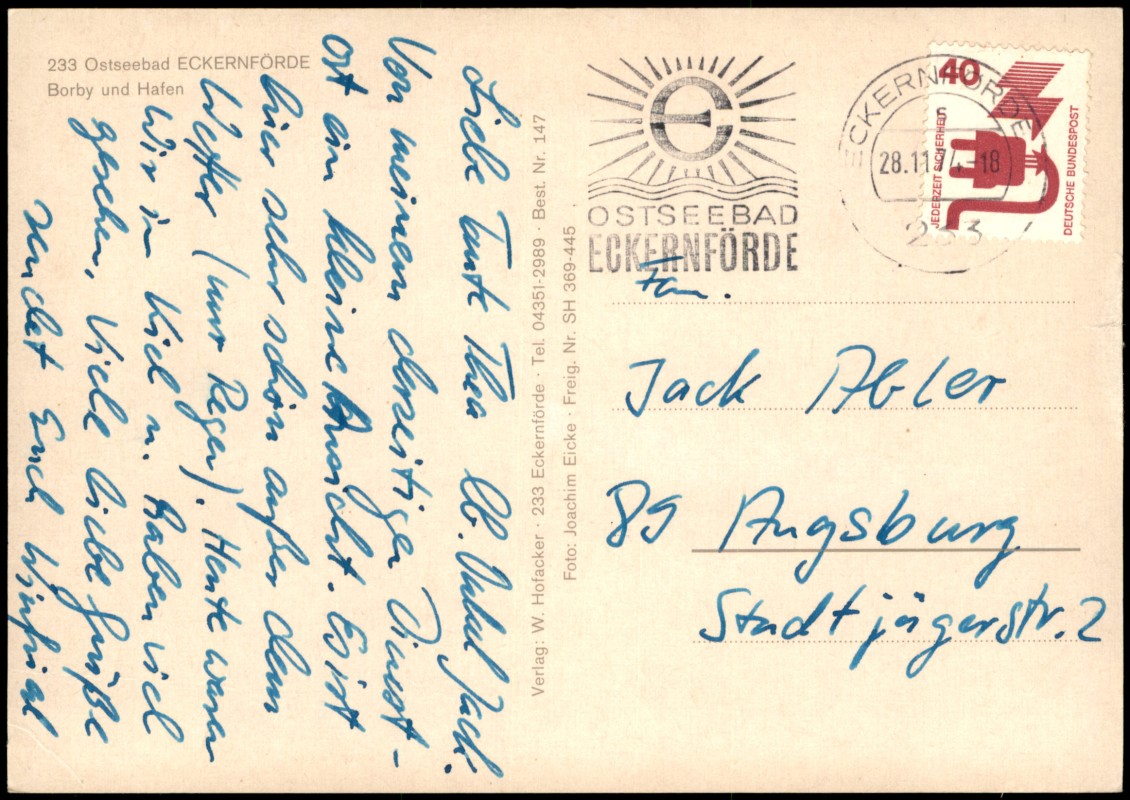 233 Ostseebad ECKERNFÖRDE
Borby und Hafen
Liebe Tante Thea lb. Onkel Jack.
Von meinem derzeitigen Dienst-
ort ein kleine Ansicht. Es ist
hier sehr schön außer dem
Wetter (nur Regen). Heute waren
Wir in Kiel u. haben viel
gesehen. Viele liebe Grüße
sendet Euch Winfried
Verlag: W. Hofacker · 233 Eckernförde · Tel. 04351-2989 · Best. Nr. 147
Foto: Joachim Eicke · Freig. Nr. SH 369-445
OSTSEEBAD
ECKERNFÖRDE
ECKERNFÖRDE
28.11.74.-18
233
40
JEDERZEIT SICHERHEIT
DEUTSCHE BUNDESPOST
Fam.
Jack Abler
89 Augsburg
Stadtjägerstr. 2